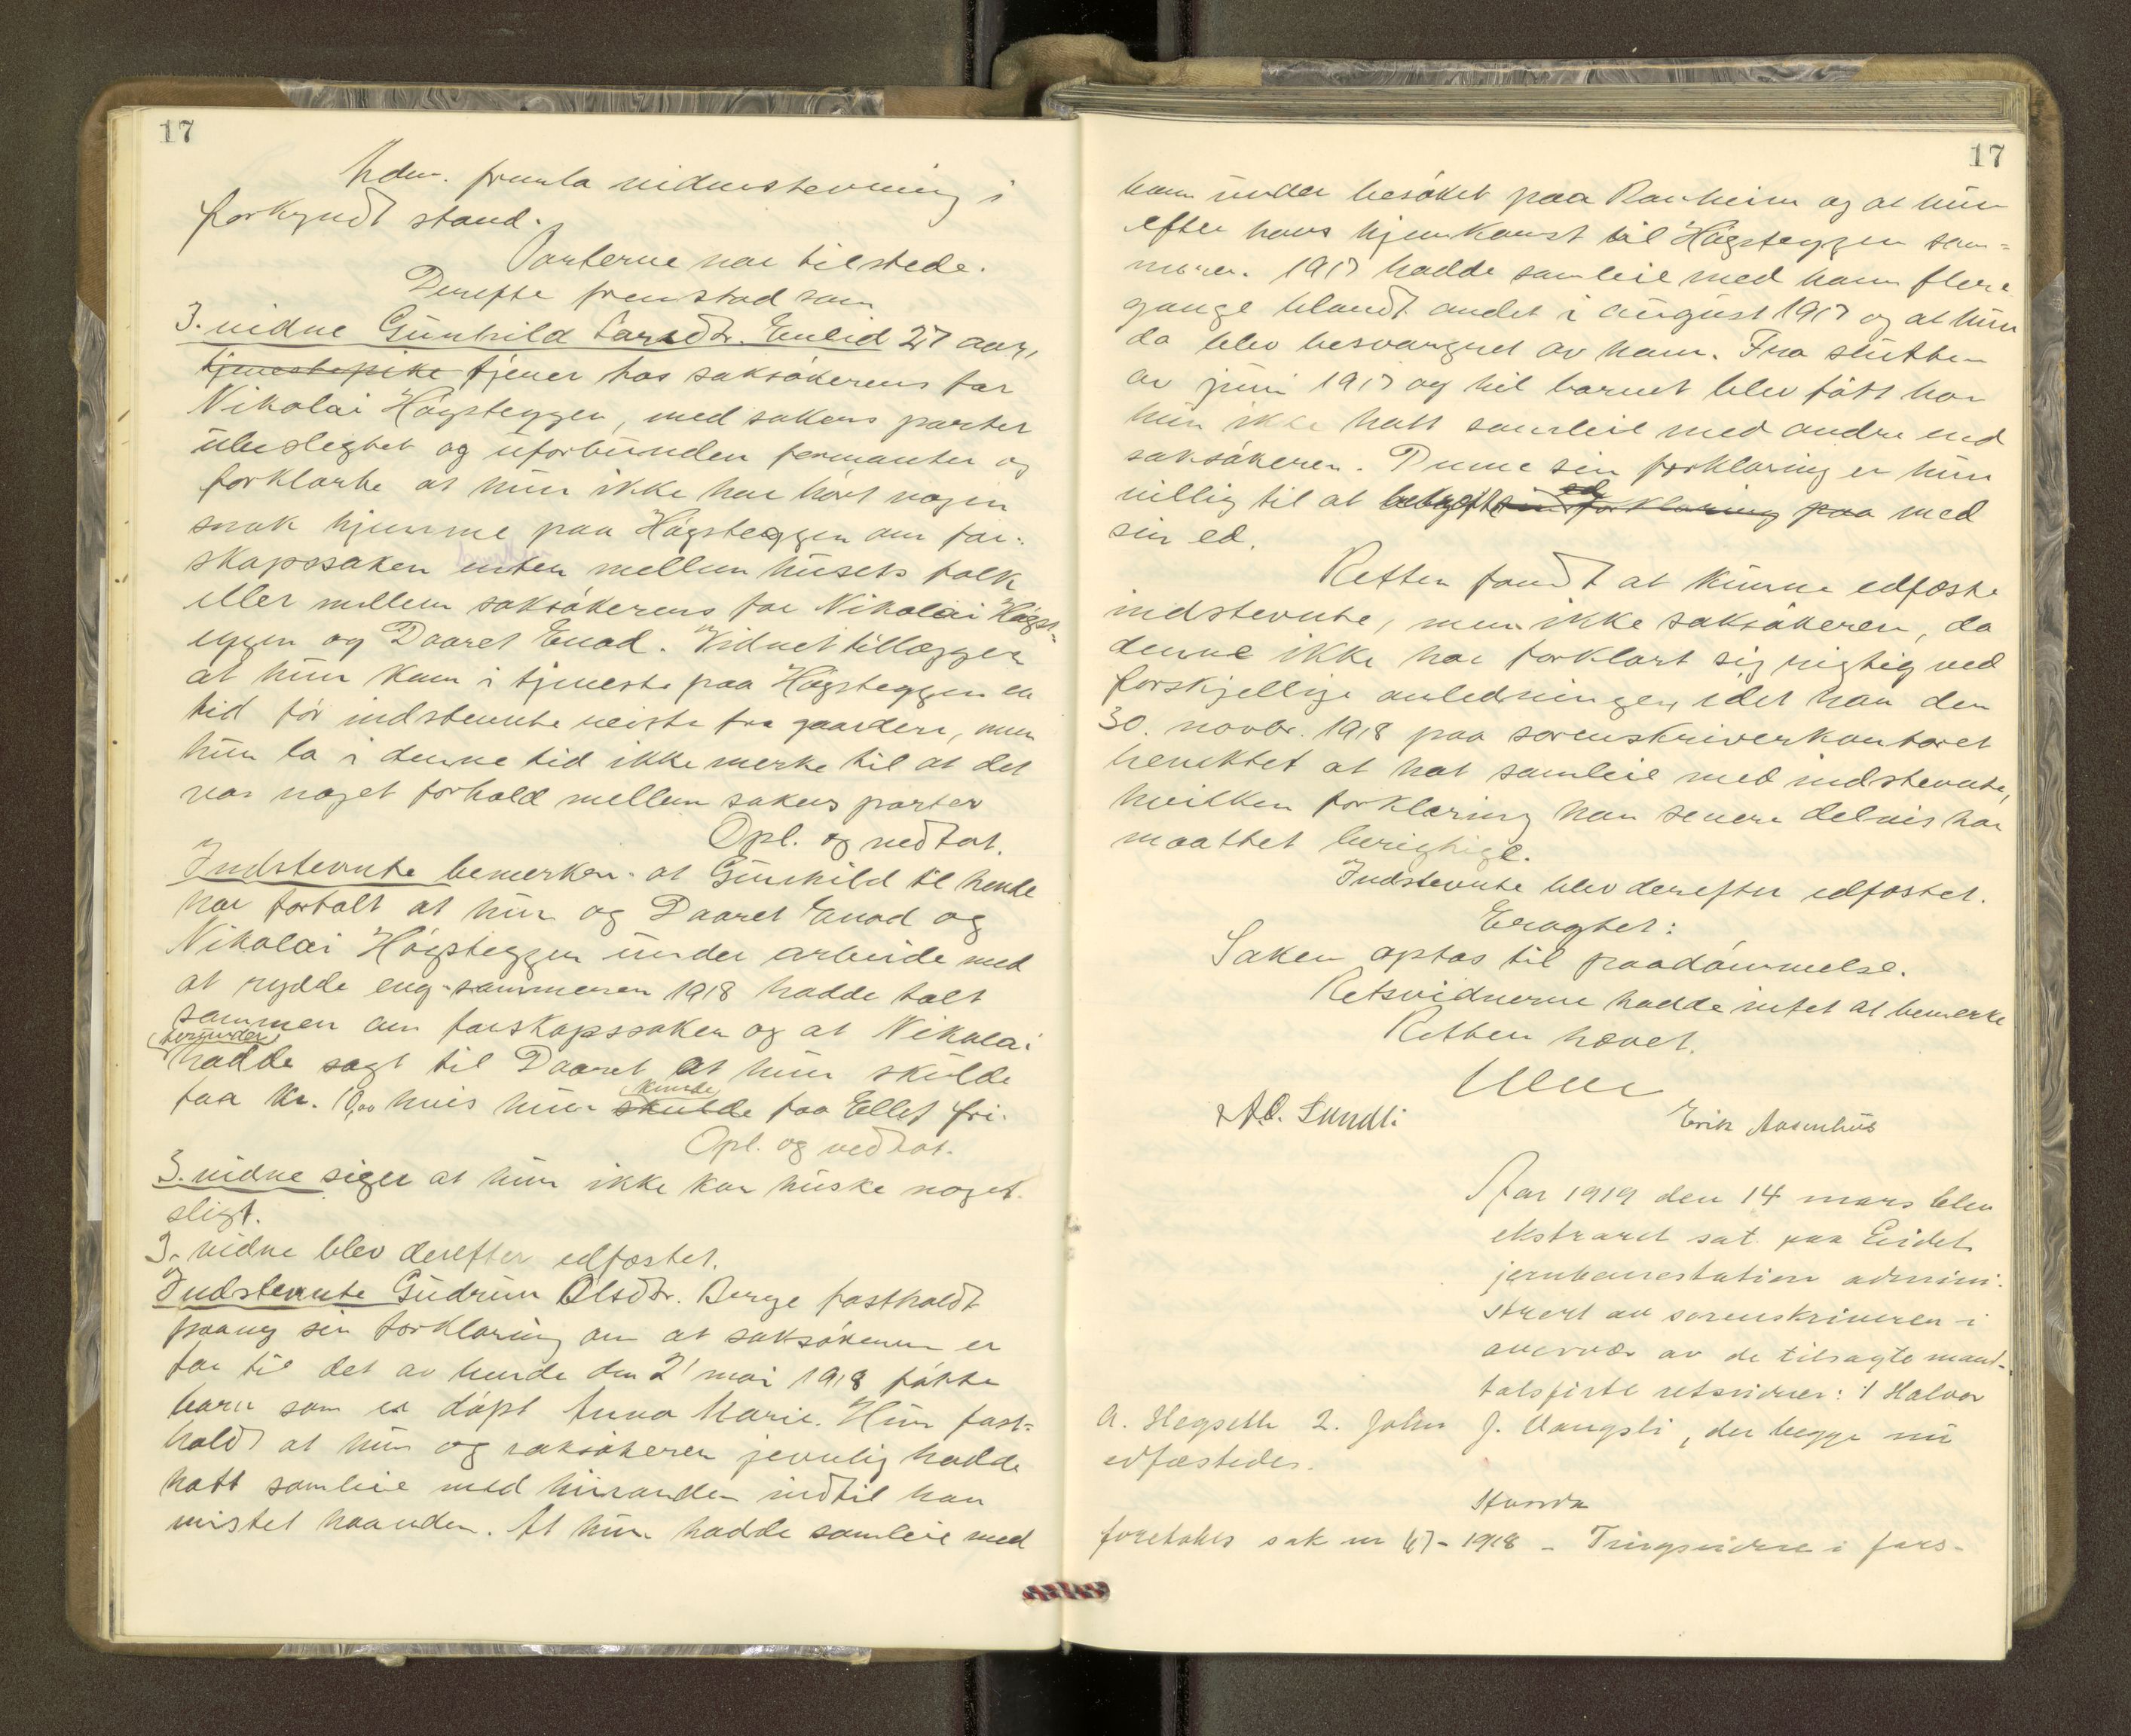 17
Adm. fremla vidnestevning i
forkyndt stand.
Parterne var tilstede.
Derefter fremstod som
3. vidne Gunhild Larsdtr. Enlid 27 aar,
tjenestepike tjener hos saksøkerens far
Nikolai Høgsteggen, med sakens parter
ubeslegtet og uforbunden formantes og
forklarte at hun ikke har hørt nogen
snak hjemme paa Høgsteggen om far-
skapssaken hverken enten mellem husets folk
eller mellem saksøkerens far Nikolai Høgst-
eggen og Daaret Enod. Vidnet tillægger
at hun kom i tjeneste paa Høgsteggen en
tid før indstevnte reiste fra gaarden, men
hun la i denne tid ikke merke til at det
var noget forhold mellem sakens parter
Opl. og vedtat.
Indstevnte bemerker at Gunhild til hende
har fortalt at hun og Daaret Enod og
Nikolai Høgsteggen under arbeide med
at rydde eng sommeren 1918 hadde talt
sammen om farskapssaken og at Nikolai
(herunder)
hadde sagt til Daaret at hun skulde
faa kr. 10,00 hvis hun skulde kunde faa Ellef fri.
Opl. og vedtat.
3. vidne siger at hun ikke kan huske noget
sligt.
3. vidne blev derefter edfæstet.
Indstevnte Gudrun Olsdtr. Berge fastholdt
paany sin forklaring om at saksøkeren er
far til det av hende den 21 mai 1918 fødte
barn som er døpt Anna Marie. Hun fast-
holdt at hun og saksøkeren jevnlig hadde
hatt samleie med hinanden indtil han
mistet haanden. At hun hadde samleie med
17
ham under besøket paa Ranheim og at hun
efter hans hjemkomst til Høgsteggen som-
meren 1917 hadde samleie med ham flere
gange blandt andet i august 1917 og at hun
da blev besvangret av ham. Fra slutten
av juni 1917 og til barnet blev født har
hun ikke hatt samleie med andre end
saksøkeren. Denne sin forklaring er hun
villig til at bekræfte sin forklaring paa med
sin ed.
Retten fandt at kunne edfæste
indstevnte, men ikke saksøkeren, da
denne ikke har forklart sig rigtig ved
forskjellige anledninger, idet han den
30. novbr. 1918 paa sorenskriverkontoret
benektet at hat samleie med indstevnte,
hvilken forklaring han senere delvis har
maattet berigtige.
Indstevnte blev derefter edfæstet.
Eragtet:
Saken optas til paadømmelse.
Retsvidnerne hadde intet at bemerke
Retten hævet.
Sundli
Erik Aasenhus
Aar 1919 den 14 mars blev
ekstraret sat paa Eidet
jernbanestation admini-
strert av sorenskriveren i
overvær av de tilsagte mand-
talsførte retsvidner: 1 Halvor
A. Hegseth 2. John J. Vangsli, der begge nu
edfæstedes.
Hvorda
foretokes sak nr 67-1918 - Tingsvidne i fars-